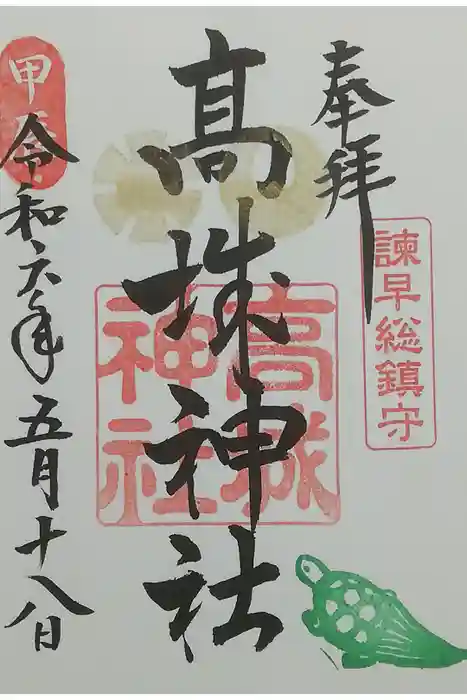 奉拝
諫早総鎮守
髙城神社
高城神社
令和六年五月十八日
甲